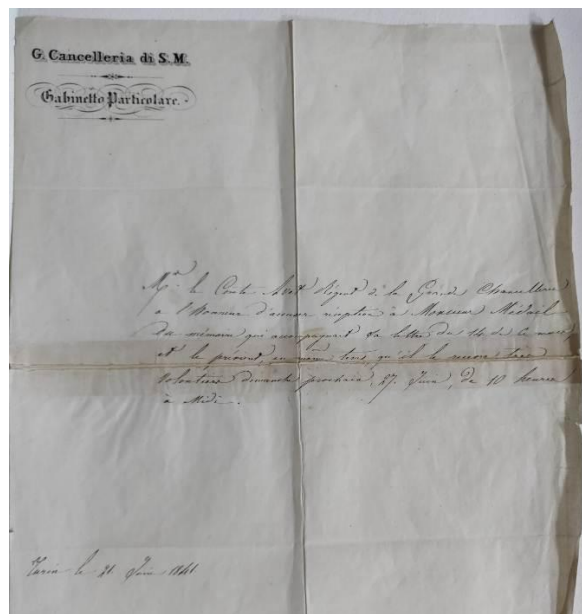 G. Cancelleria di S. M.
Gabinetto Particolare.
Mr. le Comte Avet Régent de la Grande Chancellerie
a l'honneur d'accuser réception à Monsieur Médail
Du mémoire qui accompagnait sa lettre du 14 de ce mois
et le prévient, en même tems, qu'il le recevra très
volontiers dimanche prochain, 27 Juin, de 10 heures
à Midi.
Turin le 21 Juin 1841